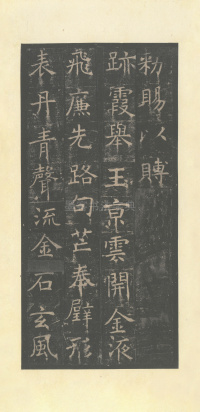 勑賜以贉
跡霞舉王京雲開金液
飛廉先路句芒奉璧形
表丹青聲流金石玄風